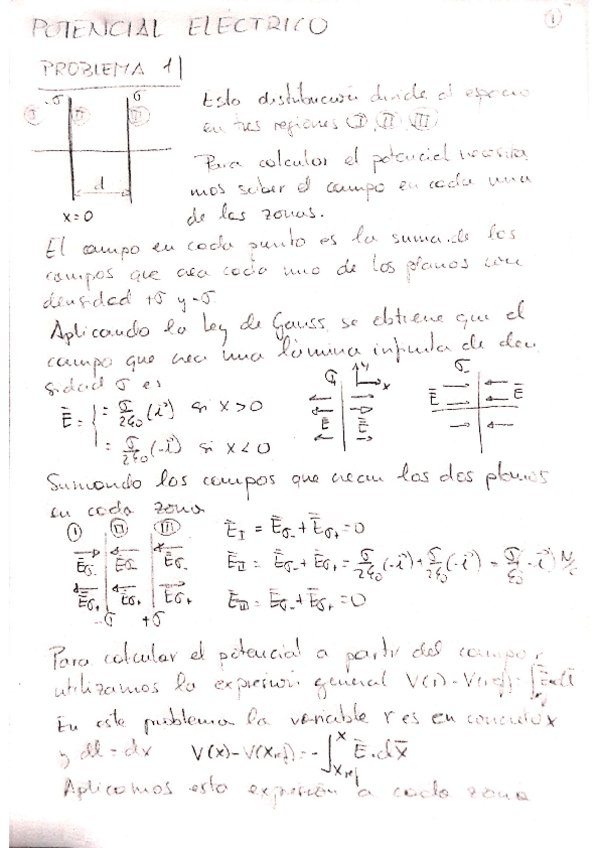 POTENCIAL ELÉCTRICO
①
PROBLEMA 1
-σ σ
Ⓘ Ⓘ Ⓘ Ⓘ Ⓘ Ⓘ
d
x=0
Esta distribución divide el espacio
en tres regiones (I), (II), (III)
Para calcular el potencial necesita
mos saber el campo en cada una
de las zonas.
El campo en cada punto es la suma de los
campos que crea cada uno de los planos con
densidad +σ y -σ
Aplicando la Ley de Gauss se obtiene que el
campo que crea una lámina infinita de den
sidad σ es
Ē = { = σ/2ε₀ (i⃗) si x>0
= σ/2ε₀ (-i⃗) si x<0
σ y x
Ē Ē
σ-
Ē Ē
Sumando los campos que crean los dos planos
en cada zona
(I) (II) (III)
Ēσ- Ēσ- Ēσ-
Ēσ+ Ēσ+ Ēσ+
-σ +σ
Ē_I = Ēσ- + Ēσ+ = 0
Ē_II = Ēσ- + Ēσ+ = σ/2ε₀ (-i⃗) + σ/2ε₀ (-i⃗) = σ/ε₀ (-i⃗) N/C
Ē_III = Ēσ- + Ēσ+ = 0
Para calcular el potencial a partir del campo,
utilizamos la expresión general V(r) - V(r ref) = -∫Ē·dl̄
En este problema la variable r es en concreto x
y dl = dx V(x) - V(xref) = -∫ x xref Ē·dx̄
Aplicamos esta expresión a cada zona